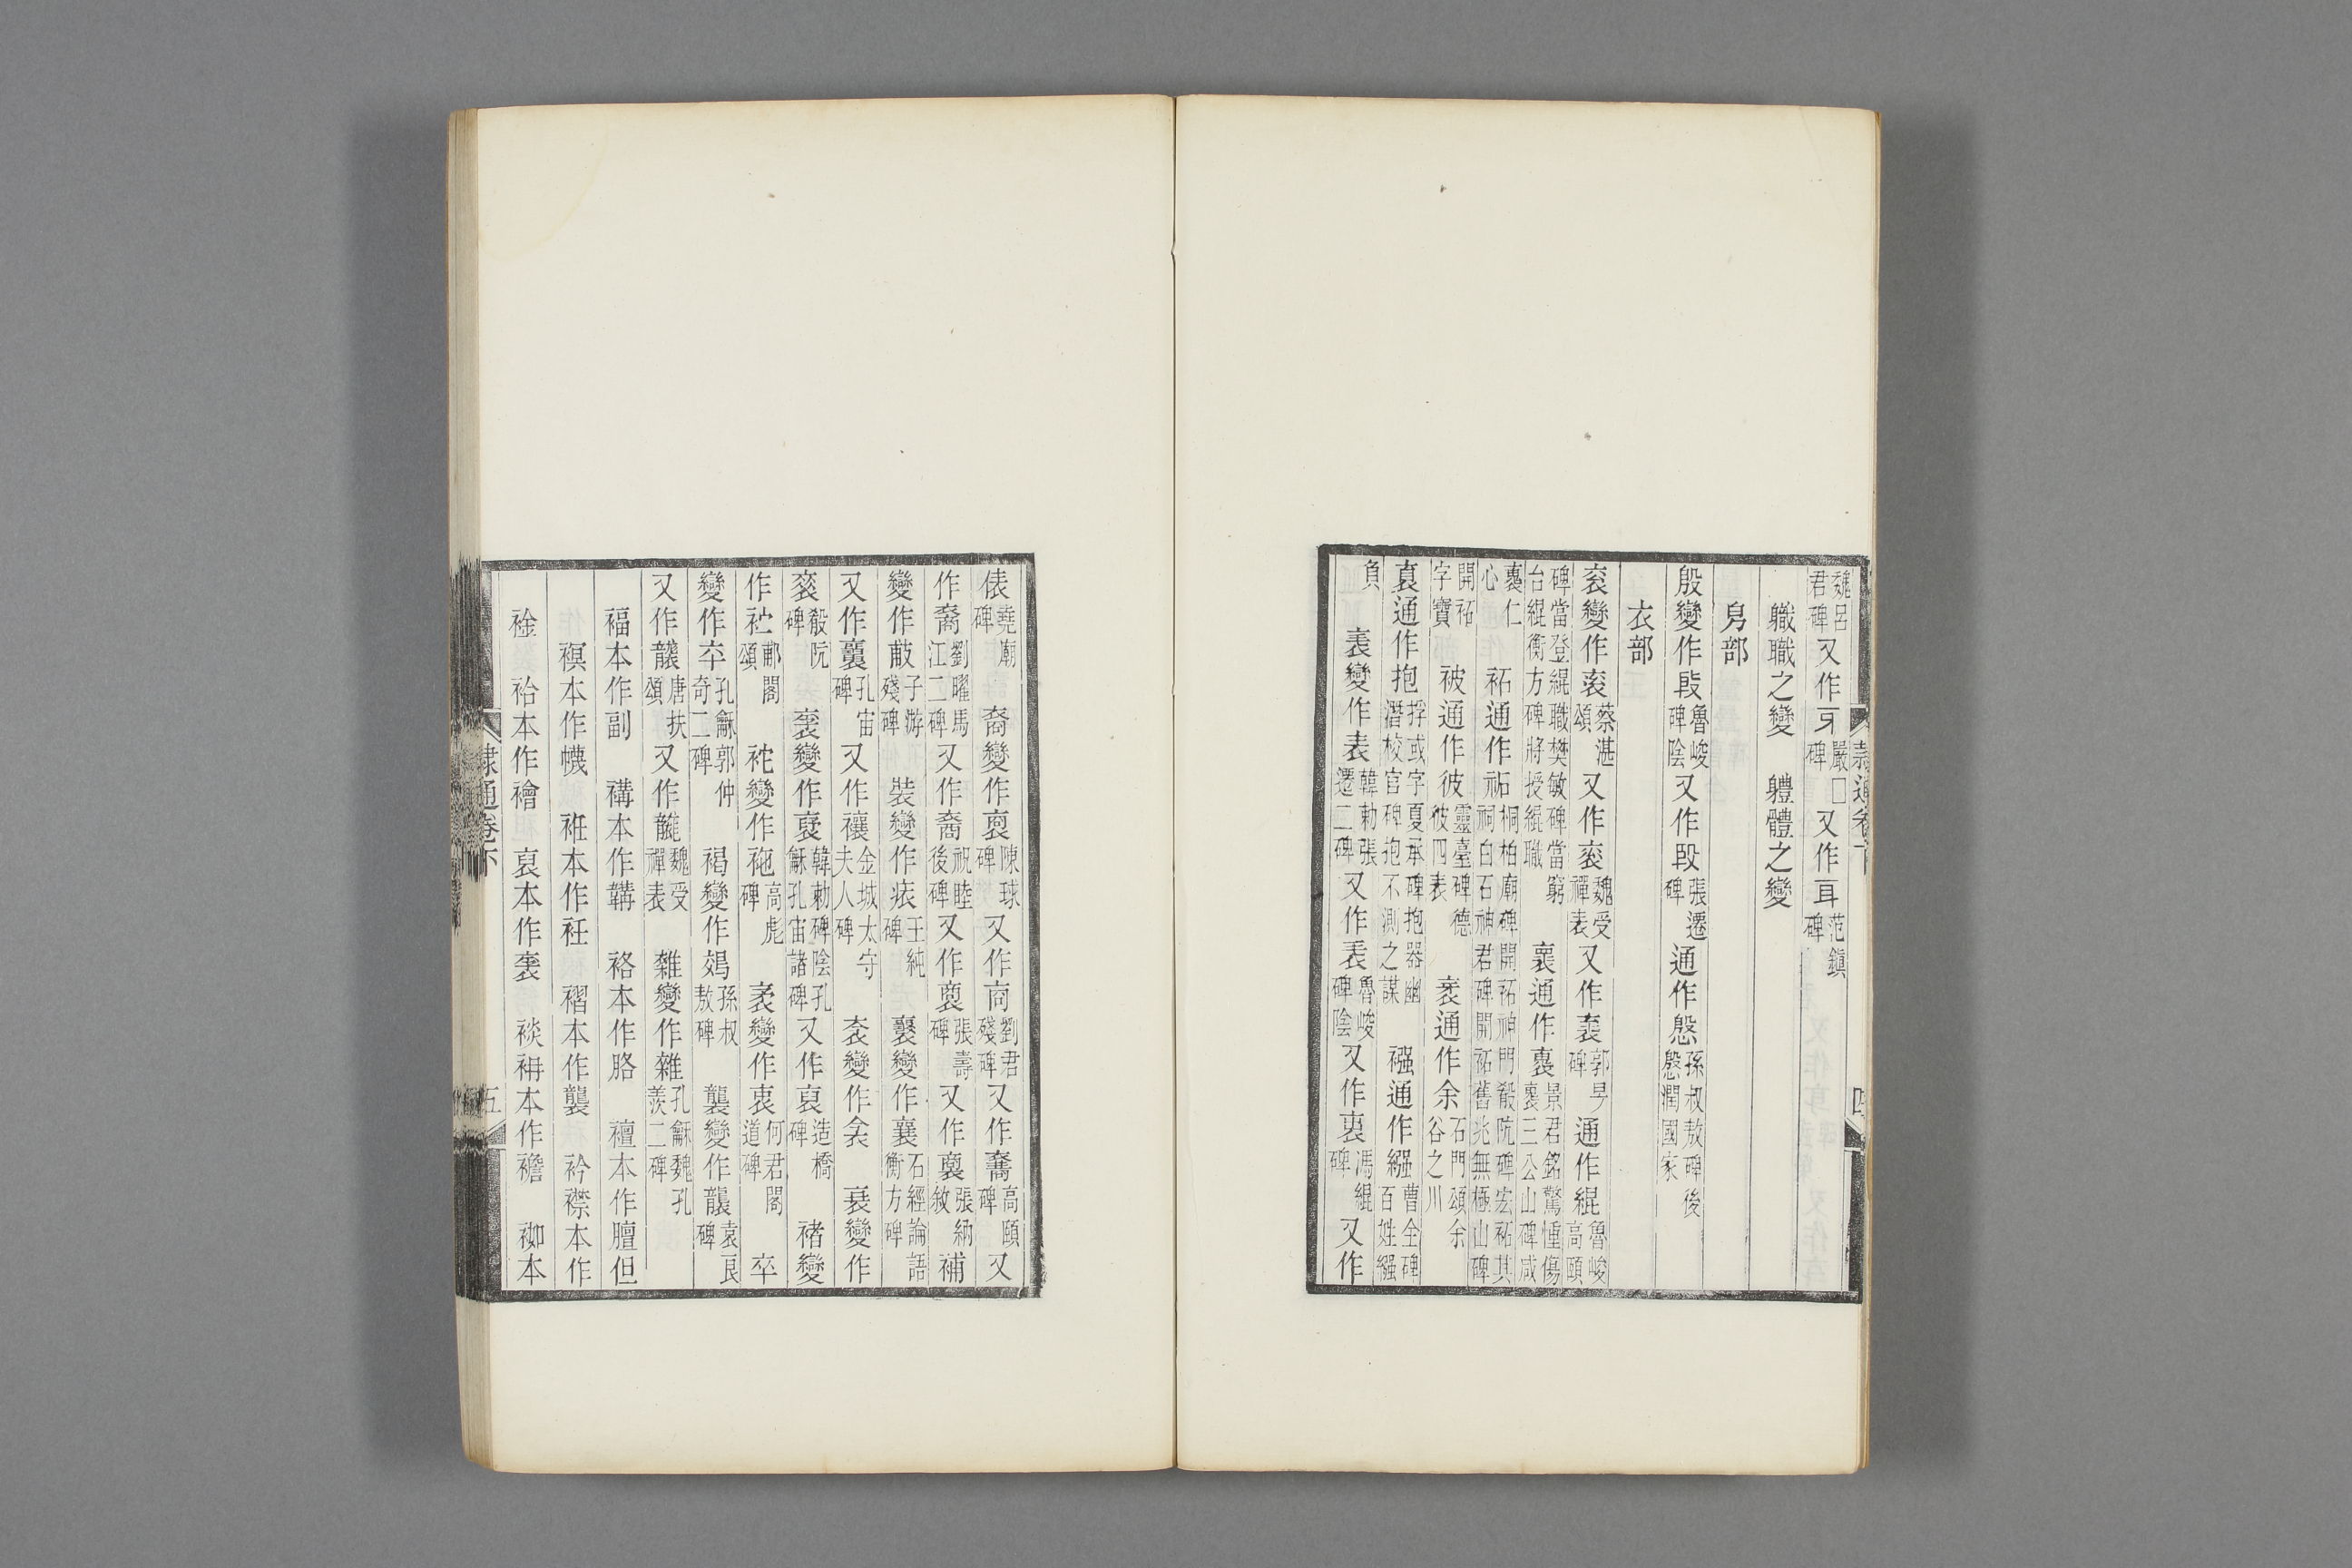 魏呂君碑又作㸦嚴□碑又作耳范鎮碑
軄職之變　軆體之變
㐆部
殷變作㲃魯峻碑陰又作殷張遷碑通作慇孫叔敖碑後慇潤國家
衣部
衮變作衮蔡湛頌又作衮魏受禪表又作裏郭旻碑通作緄魯峻碑當登緄職樊敏碑當窮台緄衡方碑將授緄職
襄通作褱景君銘驚慟傷褱三公山碑咸褱仁
心　袥通作祏桐柏廟碑開袥神門殽阬碑宏袥其祠白石神君碑開袥舊兆無極山碑
開袥字寶　被通作彼靈臺碑德彼四表　袤通作余石門頌余谷之川
袌通作抱捊或字夏承碑抱器幽潛校官碑抱不測之謀　襁通作繈曹全碑百姓繈
負　表變作表韓勅張遷二碑又作表魯峻碑陰又作裏馮緄碑又作
俵堯廟碑　裔變作裒陳球碑又作商劉君殘碑又作裔高頤碑又
作裔劉曜馬江二碑又作裔祝睦後碑又作裒張壽碑又作裒張納敘補
變作黻子游殘碑　裝變作痮王純碑　襃變作襄石經論語衡方碑
又作襄孔宙碑又作禳金城太守夫人碑　衾變作衾　衰變作
衮殽阬碑　衺變作裒韓勅碑陰孔龢孔宙諸碑又作裒造橋碑　褚變
作袏郙閣頌　袉變作袘高彪碑　袤變作衷何君閣道碑　卒
變作卒孔龢郭仲奇二碑　褐變作䙐孫叔敖碑　襲變作龔袁良碑
又作龖唐扶頌又作龖魏受禪表　雜變作雜孔龢魏孔羨二碑
福本作副　褠本作韝　袼本作胳　襢本作膻但
𧛑本作幭　袵本作衽　褶本作襲　衿襟本作
䘳　袷本作襘　裒本作褱　裧䘱本作襜　袽本
隸通卷下　四
隸通卷下　五